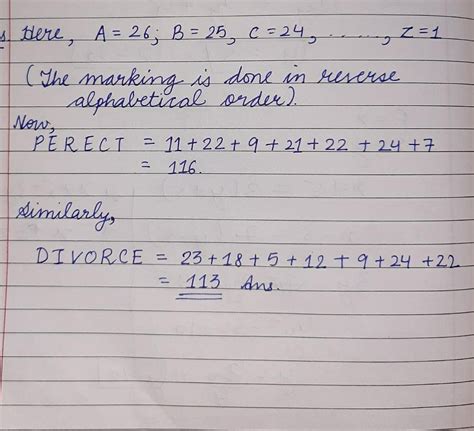 Here, A = 26; B = 25, C = 24, . . . . . ., Z = 1
(The marking is done in reverse
alphabetical order).
Now,
PERECT = 11 + 22 + 9 + 21 + 22 + 24 + 7
= 116.
Similarly,
DIVORCE = 23 + 18 + 5 + 12 + 9 + 24 + 22
= 113 Ans.